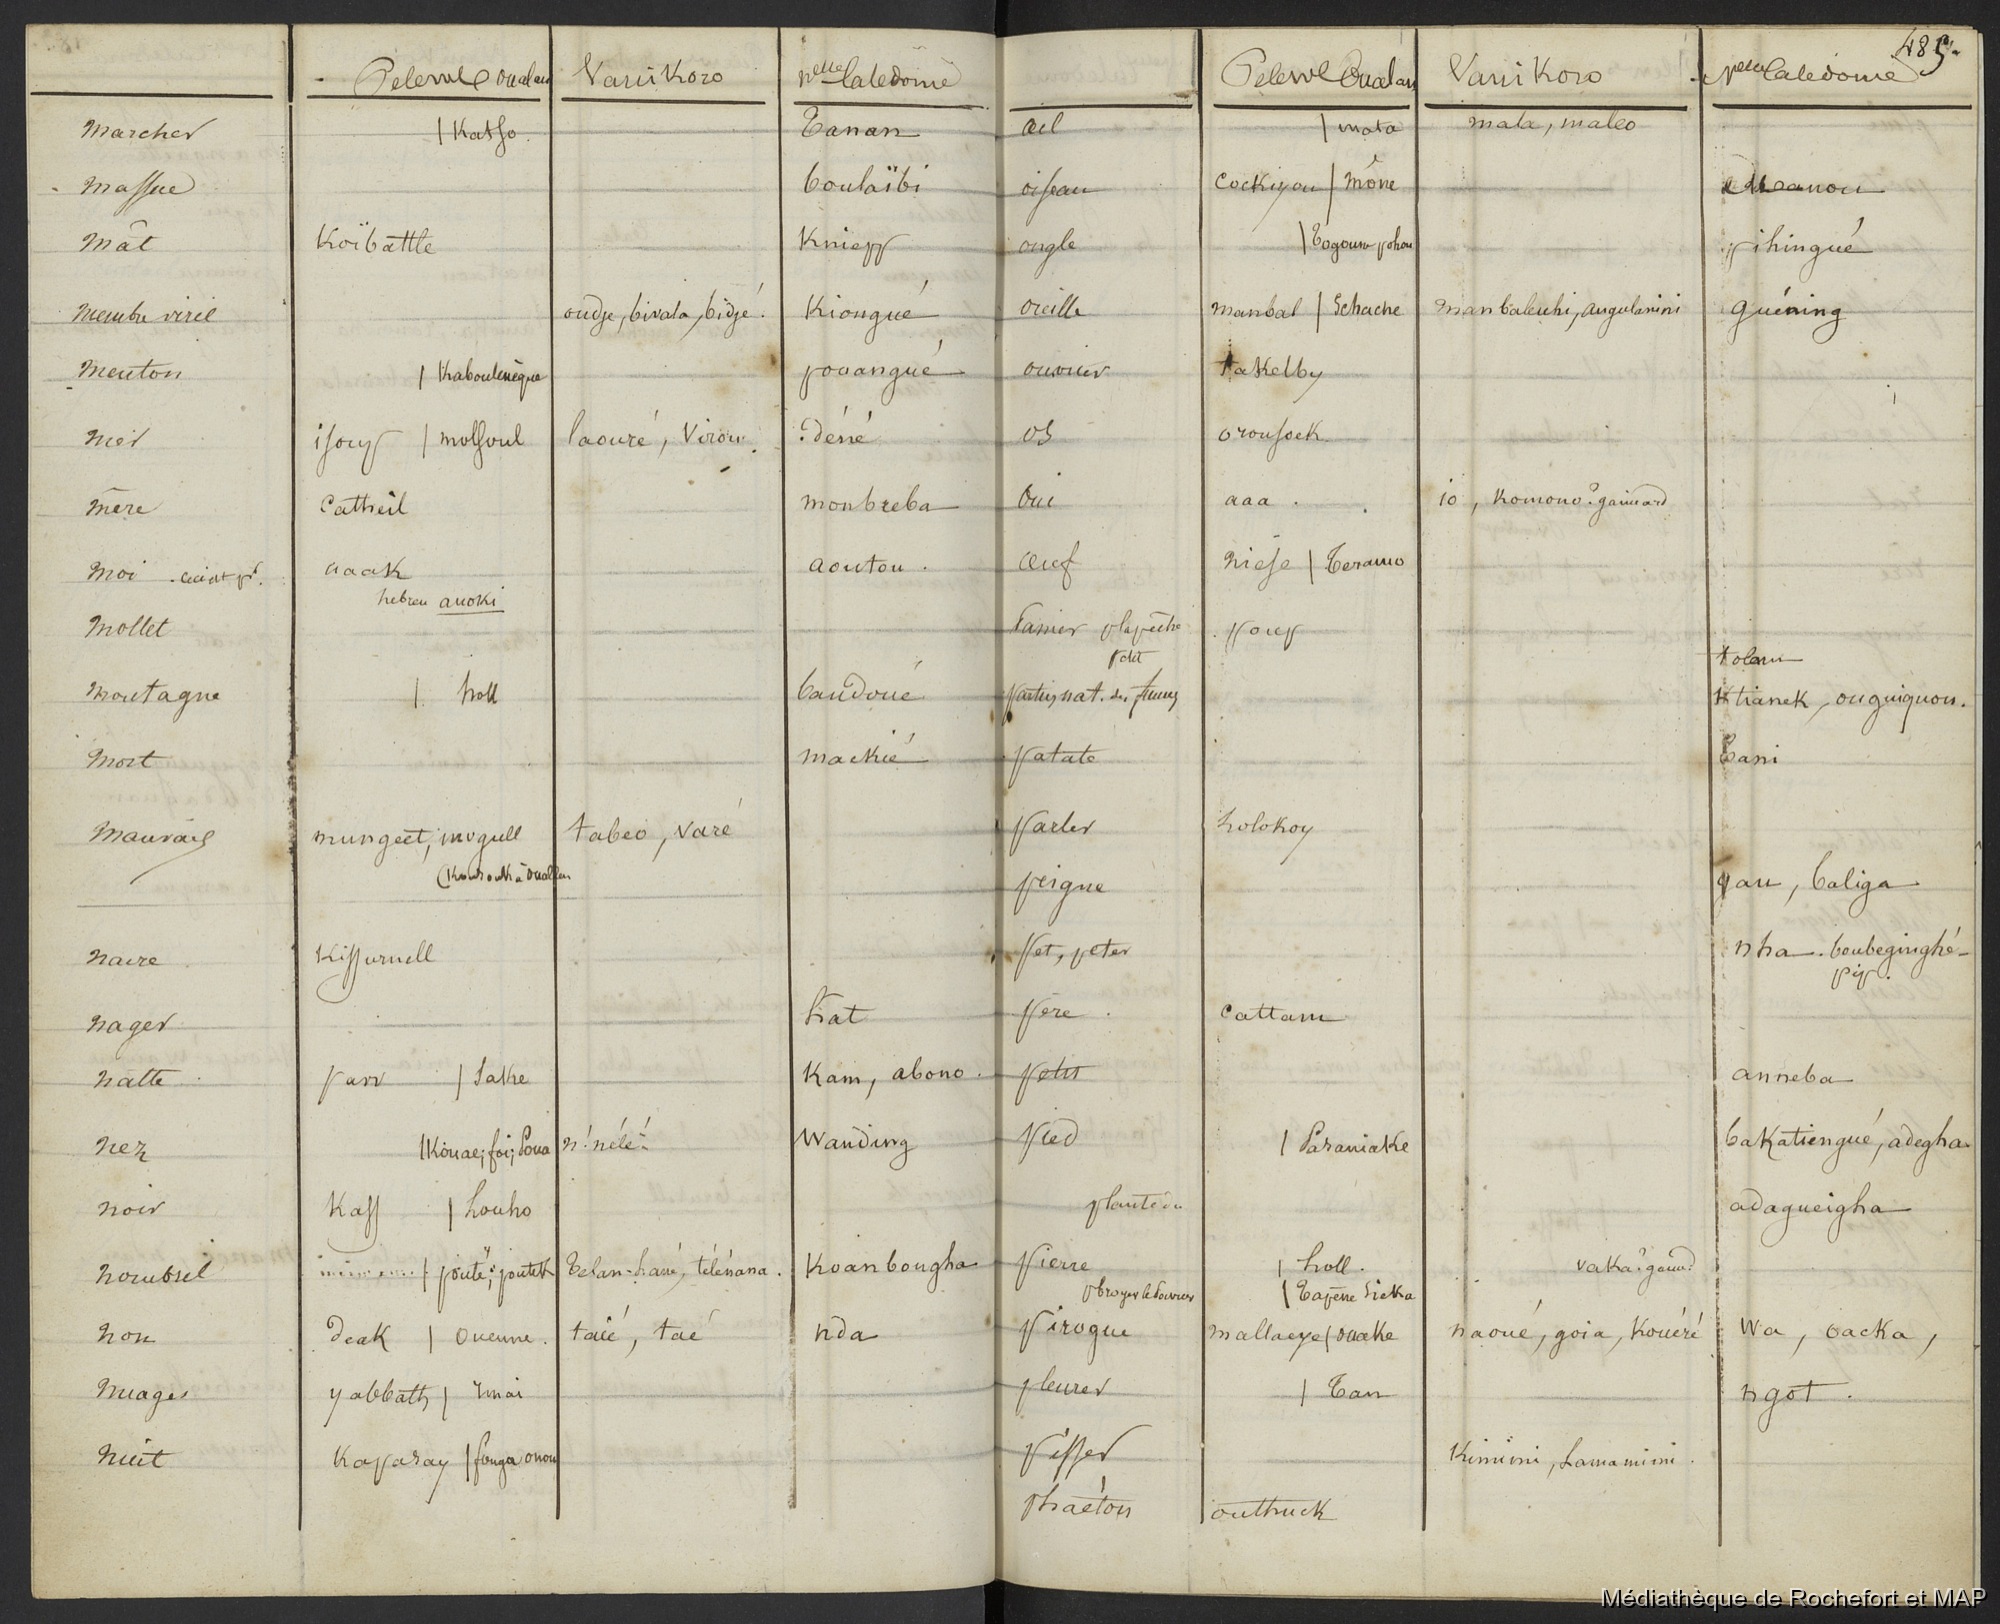 Pelew Oualan Vanikoro Nelle Calédonie
Marcher | Katso Tanan
Massue boulaïbi
Mât Koïbattle Kniepp
Membre viril oudje, bivala, bidjé Kiongué
Menton | Kabouleneque pouangué
Mer | molsoul laouré, Virou déné
mère Catheil monbreba
Moi aaak aoutou
hebreu anoki
Mollet
Montagne | holl bandoué
Mort mackié
Mauvais mungeet, mogull tabeo, varé
nacre Kissurnell
nager hat
natte parr | Sake Kam, abono
nez | Kouae; foi; Poua n'nélé Wanding
noir Kass | houho
nombril Telan-hané, télénana Koanbougha
non deak | Ouenne taié, taé nda
Nuages yabbath |
Nuit Kaparay | fonga onou
485
Pelew Oualan Vanikoro Nelle Calédonie
œil | mata mala, maleo
oiseau Cockiyou | mône Manou
ongle pihingué
oreille manbal | Schache manbaleuhi, angulanini guéning
ouvrier takelby
os orousock
Oui aaa io, Komono? gaimard
œuf niese | Teramo
Panier
tolam
Ktianek, ouguiquon
patate Tani
parler holokoy
peigne pau, baliga
Pet, peter nha. boubeginghé
pip.
Père Cattam
petit anneba
Pied | Paraniake bakatiengué, adegha
plante du adagueigha
Pierre | holl. vaka? gaim
| Tapene Sicka
Pirogue mallaeye | ouake naoué, goia, Kouéré Wa, oacka,
pleurer | Tan ngot
Pisser Kimini, Lamamimi
phaéton outhuck
Médiathèque de Rochefort et MAP